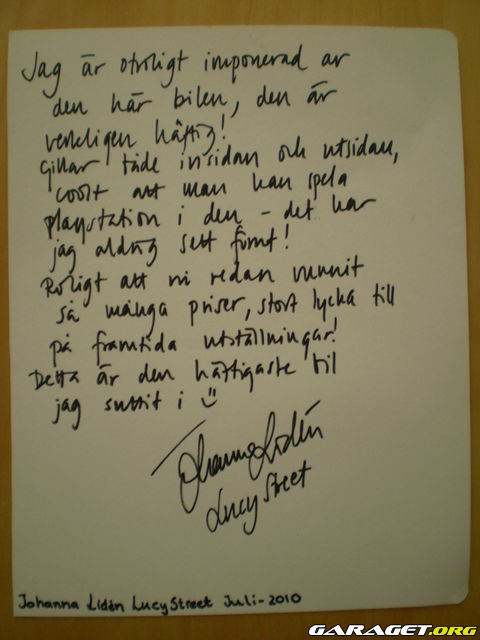 Jag är otroligt imponerad av
den här bilen, den är
verkligen häftig!
Gillar både insidan och utsidan,
coolt att man kan spela
playstation i den - det har
jag aldrig sett förut!
Roligt att ni redan vunnit
så många priser, stort lycka till
på framtida utställningar!
Detta är den häftigaste bil
jag suttit i ☺
Johanna Lidén
Lucy Street
Johanna Lidén Lucy Street Juli-2010
GARAGET.ORG